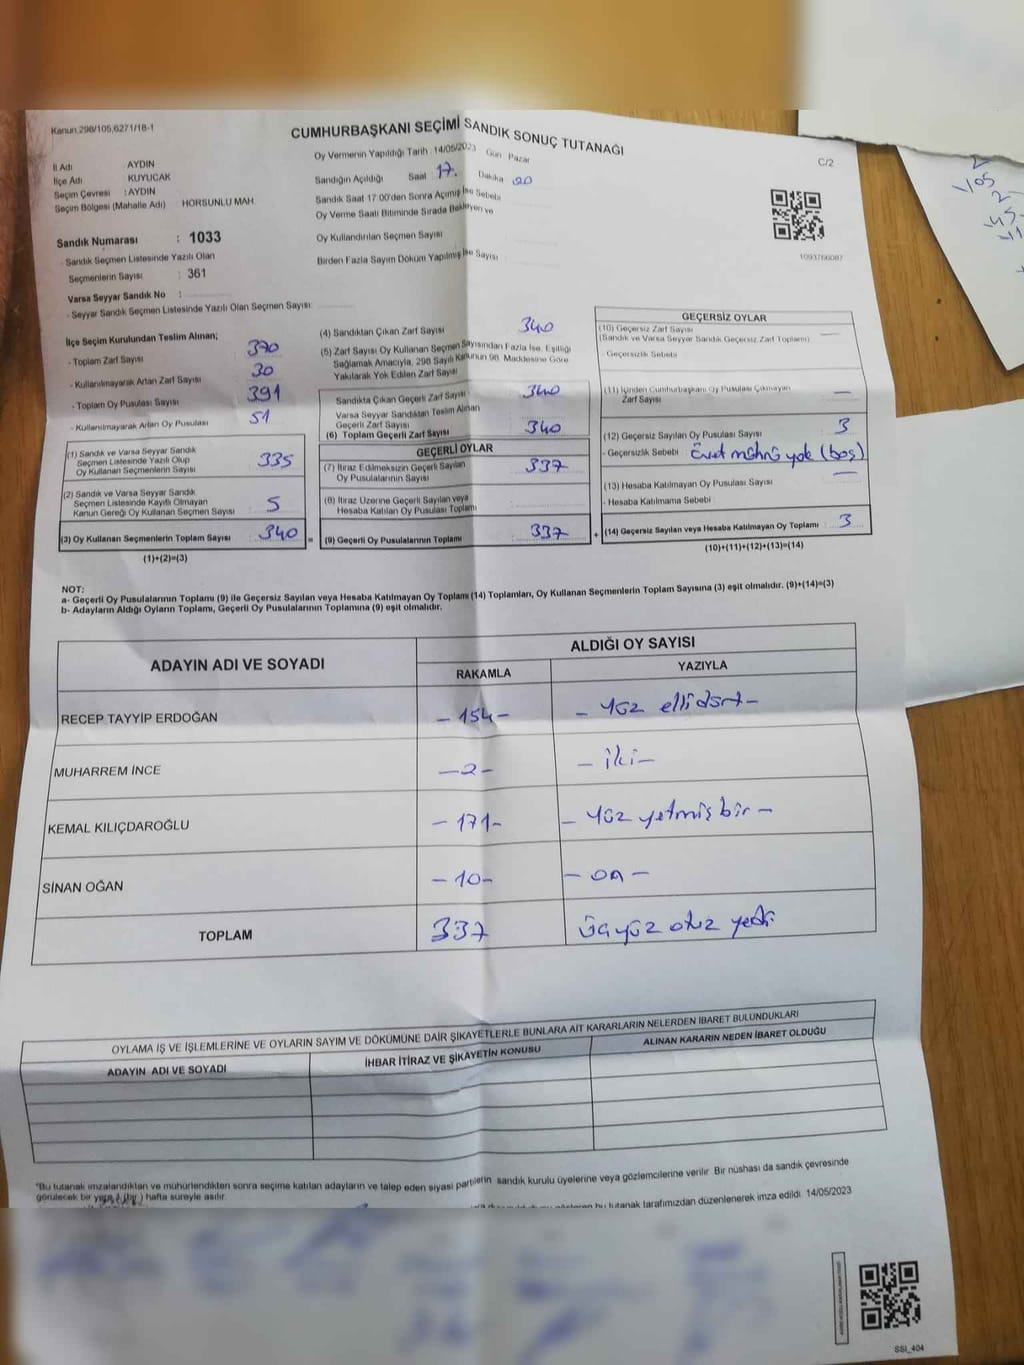 Kanun.298/105,6271/18-1
CUMHURBAŞKANI SEÇİMİ SANDIK SONUÇ TUTANAĞI
C/2
İl Adı AYDIN
İlçe Adı KUYUCAK
Seçim Çevresi : AYDIN
Seçim Bölgesi (Mahalle Adı) HORSUNLU MAH.
Oy Vermenin Yapıldığı Tarih 14/05/2023 Gün Pazar
Sandığın Açıldığı Saat 17. Dakika 00
Sandık Saat 17 00'den Sonra Açılmış İse Sebebi
Oy Verme Saati Bitiminde Sırada Bekleyen ve
Oy Kullandırılan Seçmen Sayısı
Birden Fazla Sayım Döküm Yapılmış İse Sayısı
1093766087
Sandık Numarası : 1033
- Sandık Seçmen Listesinde Yazılı Olan
Seçmenlerin Sayısı : 361
Varsa Seyyar Sandık No :
- Seyyar Sandık Seçmen Listesinde Yazılı Olan Seçmen Sayısı:
İlçe Seçim Kurulundan Teslim Alınan;
- Toplam Zarf Sayısı 370
- Kullanılmayarak Artan Zarf Sayısı 30
- Toplam Oy Pusulası Sayısı 391
- Kullanılmayarak Artan Oy Pusulası 51
(1) Sandık ve Varsa Seyyar Sandık
Seçmen Listesinde Yazılı Olup
Oy Kullanan Seçmenlerin Sayısı 335
(2) Sandık ve Varsa Seyyar Sandık
Seçmen Listesinde Kayıtlı Olmayan
Kanun Gereği Oy Kullanan Seçmen Sayısı 5
(3) Oy Kullanan Seçmenlerin Toplam Sayısı 340 =
(1)+(2)=(3)
(4) Sandıktan Çıkan Zarf Sayısı 340
(5) Zarf Sayısı Oy Kullanan Seçmen Sayısından Fazla İse, Eşitliği
Sağlamak Amacıyla, 298 Sayılı Kanunun 98. Maddesine Göre
Yakılarak Yok Edilen Zarf Sayısı
Sandıkta Çıkan Geçerli Zarf Sayısı 340
Varsa Seyyar Sandıktan Teslim Alınan
Geçerli Zarf Sayısı
(6) Toplam Geçerli Zarf Sayısı 340
GEÇERLİ OYLAR
(7) İtiraz Edilmeksizin Geçerli Sayılan
Oy Pusulalarının Sayısı 337
(8) İtiraz Üzerine Geçerli Sayılan veya
Hesaba Katılan Oy Pusulası Toplamı
(9) Geçerli Oy Pusulalarının Toplamı 337 +
GEÇERSİZ OYLAR
(10) Geçersiz Zarf Sayısı —
(Sandık ve Varsa Seyyar Sandık Geçersiz Zarf Toplamı)
- Geçersizlik Sebebi
(11) İçinden Cumhurbaşkanı Oy Pusulası Çıkmayan
Zarf Sayısı —
(12) Geçersiz Sayılan Oy Pusulası Sayısı 3
- Geçersizlik Sebebi Evet mührü yok (boş)
(13) Hesaba Katılmayan Oy Pusulası Sayısı —
- Hesaba Katılmama Sebebi
(14) Geçersiz Sayılan veya Hesaba Katılmayan Oy Toplamı 3
(10)+(11)+(12)+(13)=(14)
NOT:
a- Geçerli Oy Pusulalarının Toplamı (9) ile Geçersiz Sayılan veya Hesaba Katılmayan Oy Toplamı (14) Toplamları, Oy Kullanan Seçmenlerin Toplam Sayısına (3) eşit olmalıdır. (9)+(14)=(3)
b- Adayların Aldığı Oyların Toplamı, Geçerli Oy Pusulalarının Toplamına (9) eşit olmalıdır.
ADAYIN ADI VE SOYADI ALDIĞI OY SAYISI
RAKAMLA YAZIYLA
RECEP TAYYİP ERDOĞAN - 154 - - Yüz ellidört -
MUHARREM İNCE - 2 - - iki -
KEMAL KILIÇDAROĞLU - 171 - - Yüz yetmiş bir -
SİNAN OĞAN - 10 - - on -
TOPLAM 337 üçyüz otuz yedi
OYLAMA İŞ VE İŞLEMLERİNE VE OYLARIN SAYIM VE DÖKÜMÜNE DAİR ŞİKAYETLERLE BUNLARA AİT KARARLARIN NELERDEN İBARET BULUNDUKLARI
ADAYIN ADI VE SOYADI İHBAR İTİRAZ VE ŞİKAYETİN KONUSU ALINAN KARARIN NEDEN İBARET OLDUĞU
"Bu tutanak imzalandıktan ve mühürlendikten sonra seçime katılan adayların ve talep eden siyasi partilerin sandık kurulu üyelerine veya gözlemcilerine verilir. Bir nüshası da sandık çevresinde
görülecek bir yere 1 (bir) hafta süreyle asılır.
bu tutanak tarafımızdan düzenlenerek imza edildi. 14/05/2023
SSİ_404